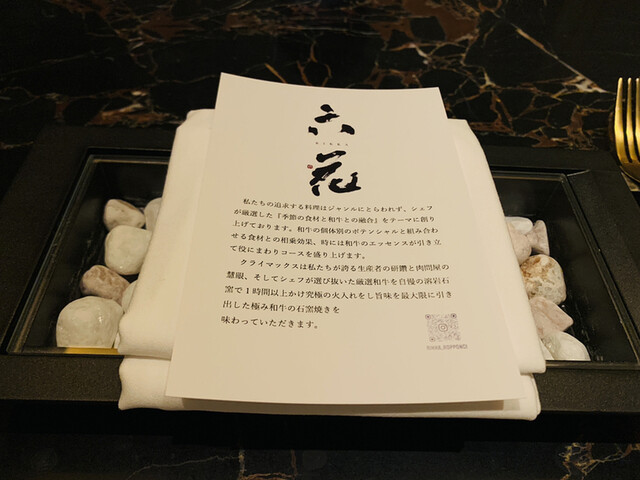 六
花
私たちの追求する料理はジャンルにとらわれず、シェフ
が厳選した『季節の食材と和牛との融合』をテーマに創り
上げております。和牛の個体別のポテンシャルと組み合わ
せる食材との相乗効果、時には和牛のエッセンスが引き立
て役にまわりコースを盛り上げます。
クライマックスは私たちが誇る生産者の研鑽と肉問屋の
慧眼、そしてシェフが選び抜いた厳選和牛を自慢の溶岩石
窯で1時間以上かけ究極の火入れをし旨味を最大限に引き
出した極み和牛の石窯焼きを
味わっていただきます。